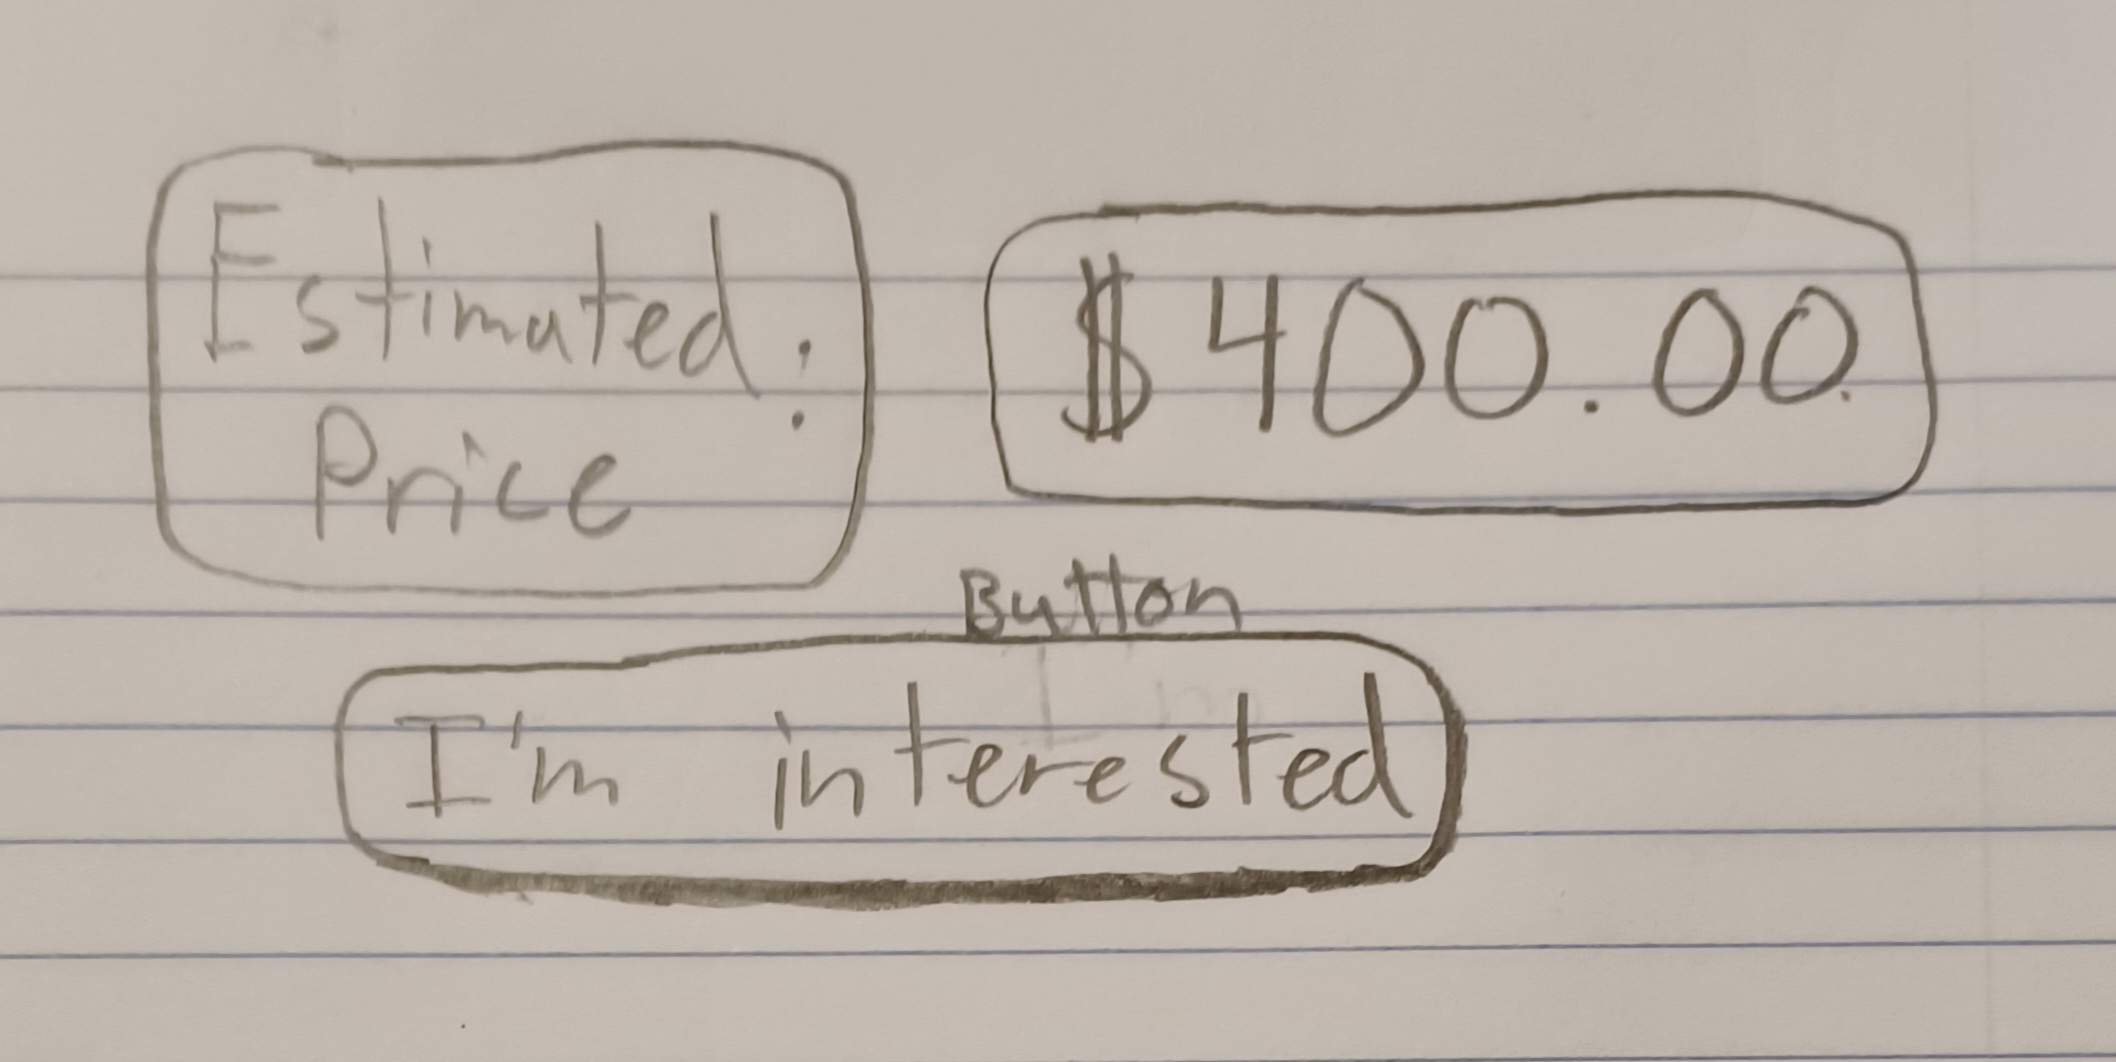 Estimated:
Price
$400.00
Button
I'm interested